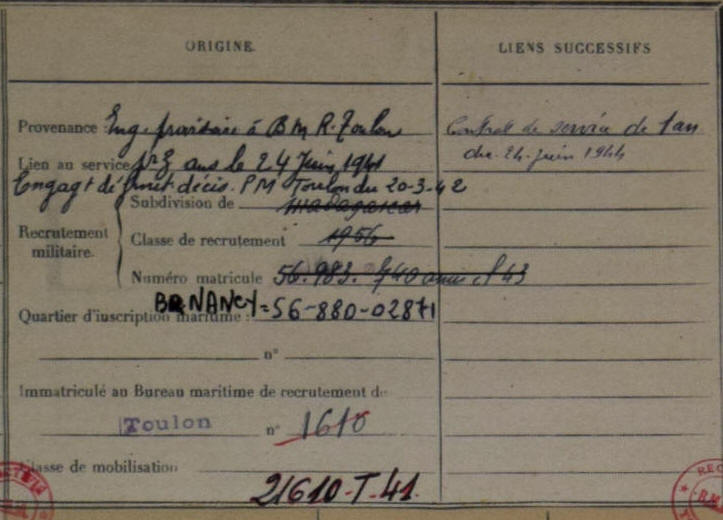 ORIGINE.
LIENS SUCCESSIFS
Provenance : Eng. provisoire à B M R. Toulon
Contrat de service de 1 an
Lien au service pr 3 ans le 24 Juin 1941
du 24 juin 1944
Engagt définit. décis. P.M Toulon du 20-3-42
Recrutement militaire.
Subdivision de madagascar
Classe de recrutement 1956
Numéro matricule 56.983.
BR NANCY = 56-880-02871
Quartier d'inscription maritime :
n°
Immatriculé au Bureau maritime de recrutement de
Toulon n° 1610
Classe de mobilisation
21610-T-41.